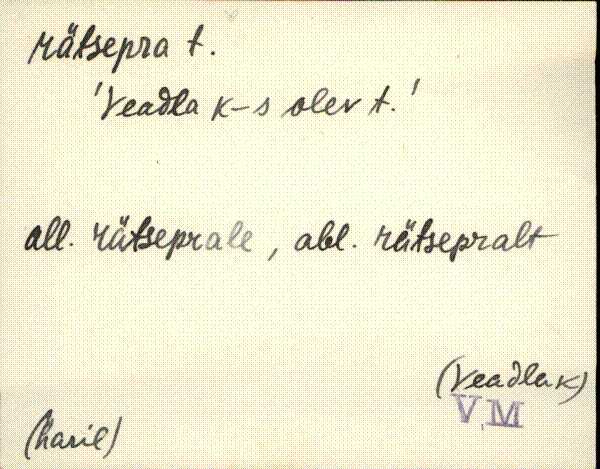 rätsepra t.
'Veadla k-s olev t.'
all. rätseprale, abl. rätsepralt
(Veadla k)
V,M
(haril)